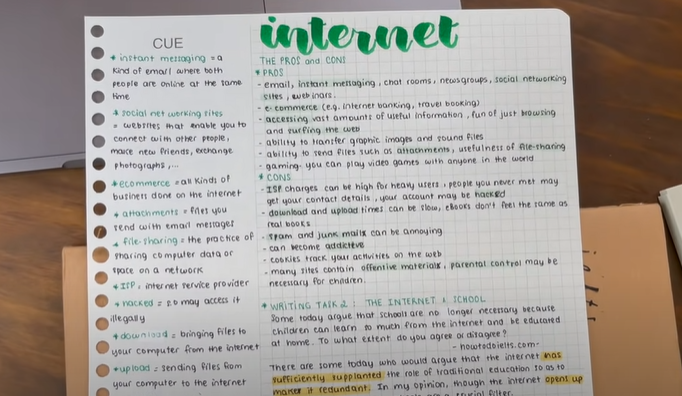 internet
CUE
* instant messaging = a
kind of email where both
people are online at the same
time
* social net working sites
= websites that enable you to
connect with other people,
make new friends, exchange
photographs ,...
* ecommerce = all kinds of
business done on the internet
* attachments = files you
send with email messages
* file-sharing = the practice of
sharing computer data or
space on a network
* ISP = internet service provider
* hacked = so may access it
illegally
* download = bringing files to
your computer from the internet
* upload = sending files from
your computer to the internet
THE PROS and CONS
* PROS
- email, instant messaging, chat rooms, newsgroups, social networking
sites, webinars.
- e-commerce (e.g. internet banking, travel booking)
- accessing vast amounts of useful information, fun of just browsing
and surfing the web
- ability to transfer graphic images and sound files
- ability to send files such as attachments, usefulness of file-sharing
- gaming. you can play video games with anyone in the world
* CONS
- ISP charges can be high for heavy users, people you never met may
get your contact details, your account may be hacked
- download and upload times can be slow, ebooks don't feel the same as
real books
- spam and junk mails can be annoying
- can become addictive
- cookies track your activities on the web
- many sites contain offensive materials, parental control may be
necessary for children.
* WRITING TASK 2 : THE INTERNET & SCHOOL
Some today argue that schools are no longer necessary because
children can learn so much from the internet and be educated
at home. To what extent do you agree or disagree?
- howtodoielts.com-
There are some today who would argue that the internet has
sufficiently supplanted the role of traditional education so as to
make it redundant. In my opinion, though the internet opens up
crucial filter.